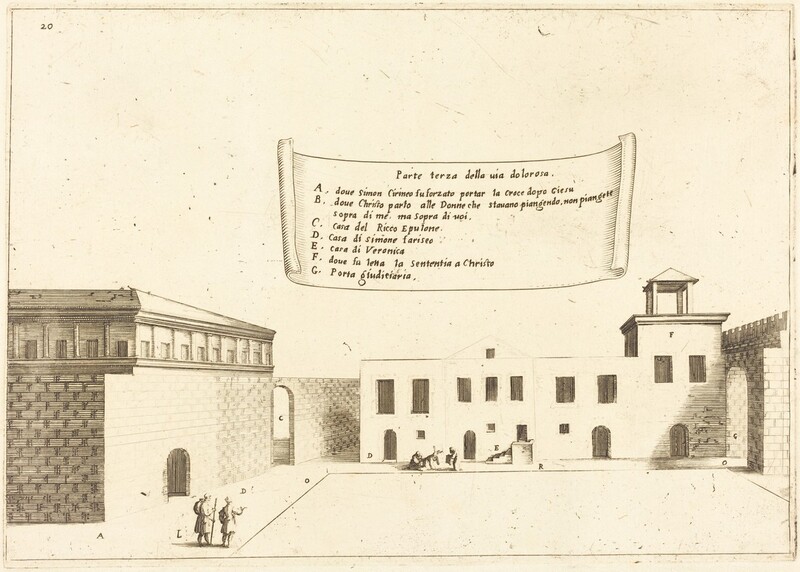 20
Parte terza della uia dolorosa.
A. doue Simon Cirineo fu forzato portar la Croce dopo Giesu
B. doue Christo parlo alle Donne che stauano piangendo, non piangete
sopra di me. ma sopra di uoi.
C. Casa del Ricco Epulone.
D. Casa di Simone fariseo
E. casa di Veronica
F. doue fu letta la Sententia a Christo
G. Porta giuditiaria.
F
C
G
D
E
R
O
D
O
L
A